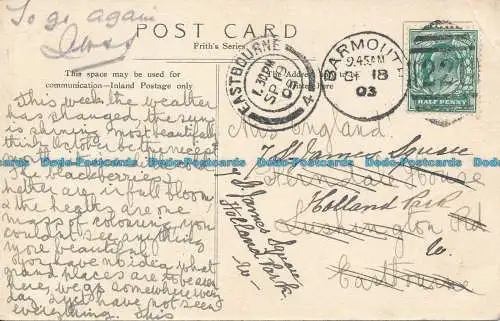 To go again
POST CARD
Frith's Series
This space may be used for
communication—Inland Postage only
The Address
EASTBOURNE
1.30PM
SP 19
03
4
BARMOUTH
9.45AM
SP 18
03
HALF PENNY
This week the weather
has changed the sun
is shining most beautifully
the blackberries
heather are in full bloom,
& the heights are one
mass of colouring, you
couldn't see anything
more beautiful.
You have no idea what
grand places are to be seen
here, we go somewhere every
day & yet have not seen
everything. This
England
7 St James Square
Holland Park
Lushington Rd
W.
Eastbourne
7 St James Square
Holland Park.
W
Delcampe-Dodo-Postcards